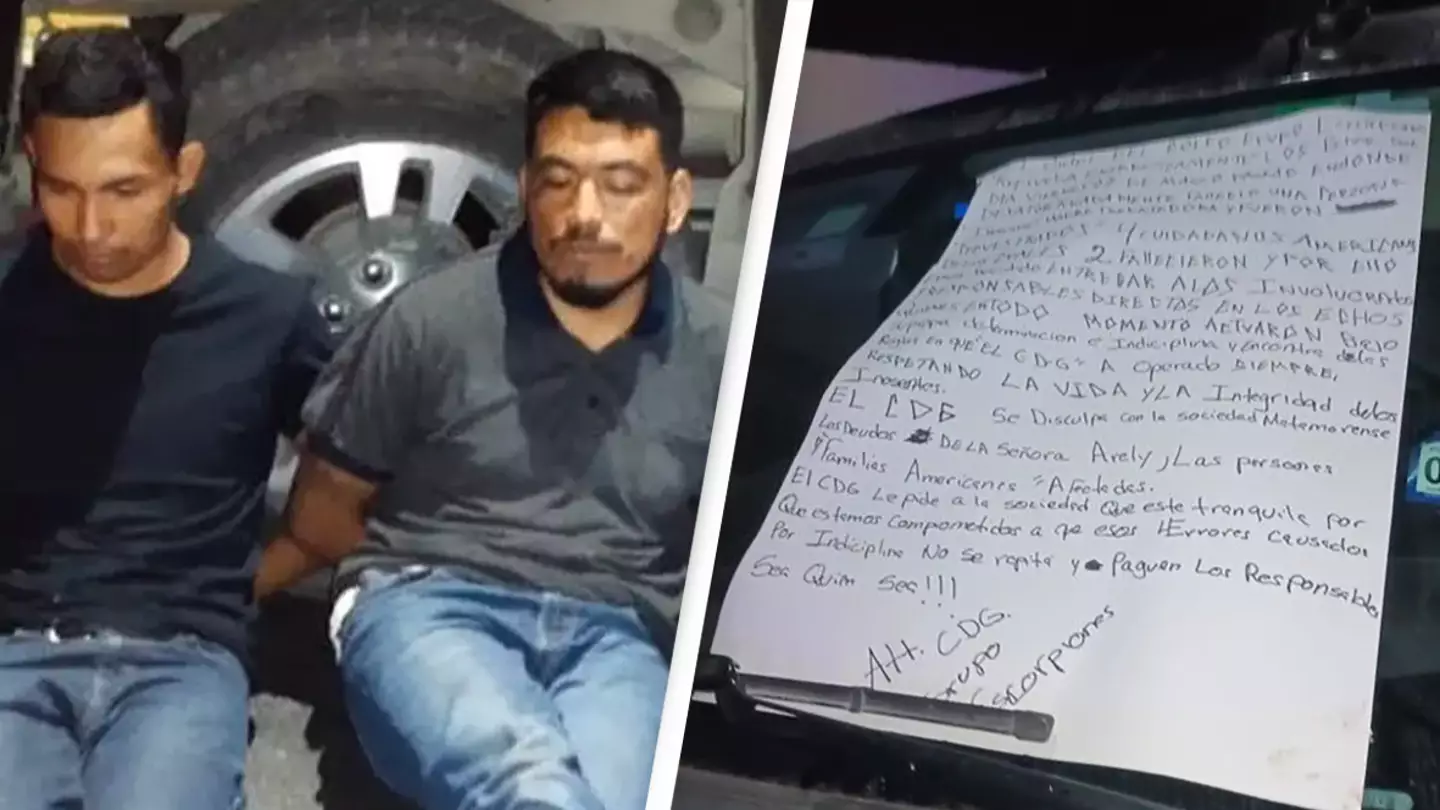 DIA VIERNES 3 DE MARZO
LAMENTABLEMENTE FALLECIO UNA PERSONA
TRABAJADORA Y FUERON
4 CIUDADANOS AMERICANOS
2 FALLECIERON Y POR ELLO
ENTREGAR A LOS INVOLUCRADOS
RESPONSABLES DIRECTOS EN LOS ECHOS
EN TODO MOMENTO ACTUARON BAJO
determinacion e Indiciplina y Encontra de las
Reglas en QUE "EL CDG" A Operado SIEMPRE,
RESPETANDO LA VIDA Y LA Integridad de los
Inosentes.
EL CDG Se Disculpa con la sociedad Matamorense
Los Deudos DE LA Señora Arely, Las personas
y Familias Americanas Afectadas.
El CDG Le pide a la sociedad Que este tranquila por
Que estamos Comprometidos a que esos Errores Causados
Por Indiciplina No se repita y Paguen Los Responsables
Sea Quin Sea!!!
Att. CDG.
Grupo
Escorpiones
0